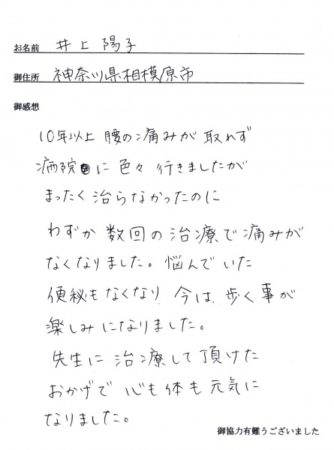 お名前 井上陽子
御住所 神奈川県相模原市
御感想
10年以上腰の痛みが取れず
病院に色々行きましたが
まったく治らなかったのに
わずか数回の治療で痛みが
なくなりました。悩んでいた
便秘もなくなり今は、歩く事が
楽しみになりました。
先生に治療して頂けた
おかげで心も体も元気に
なりました。
御協力有難うございました